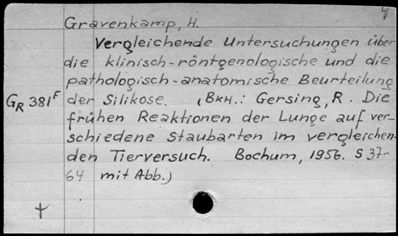 Gravenkamp, H.
Vergleichende Untersuchungen über
die klinisch-röntgenologische und die
pathologisch-anatomische Beurteilung
GR 381F der Silikose. (Вкн.: Gersing, R. Die
frühen Reaktionen der Lunge auf ver-
schiedene Staubarten im vergleichen-
den Tierversuch. Bochum, 1956. S 37-
64 mit Abb.)